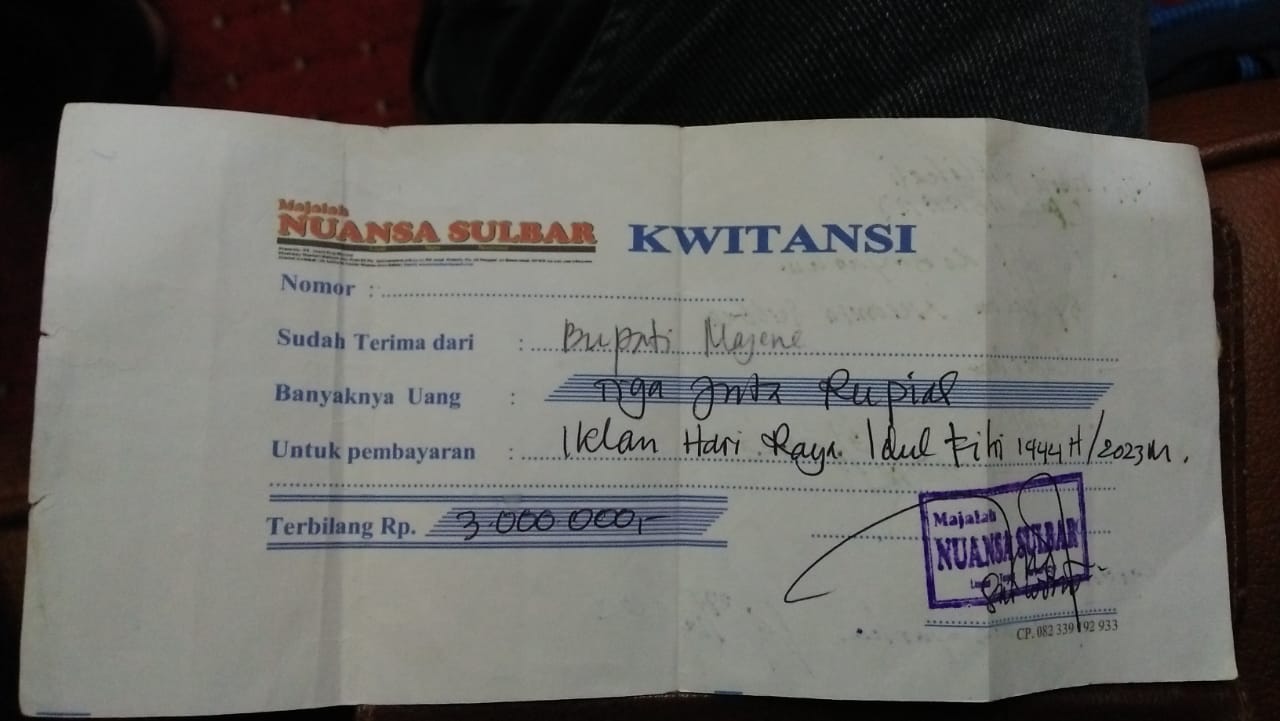 Majalah
NUANSA SULBAR
KWITANSI
Nomor :
Sudah Terima dari : Bupati Majene
Banyaknya Uang : Tiga Juta Rupiah
Untuk pembayaran : Iklan Hari Raya Idul Fitri 1444 H/2023 M.
Terbilang Rp. 3.000 000,-
Majalah
NUANSA SULBAR
CP. 082 339 92 933